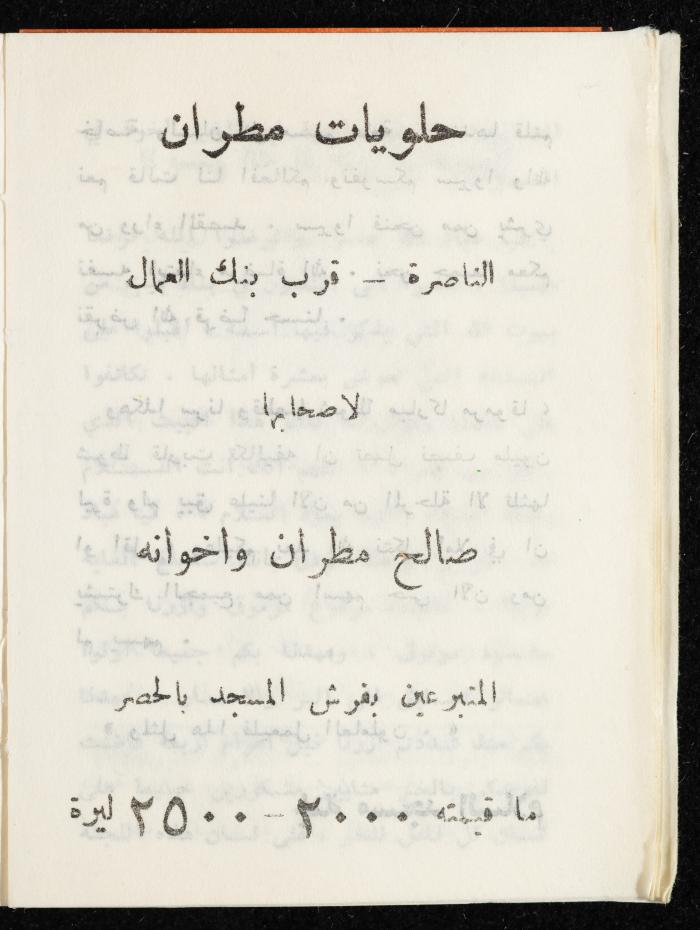 حلويات مطران
الناصرة – قرب بنك العمال
لاصحابها
صالح مطران واخوانه
المتبرعين بفرش المسجد بالحصر
ما قيمته ٢٠٠٠ – ٢٥٠٠ ليرة